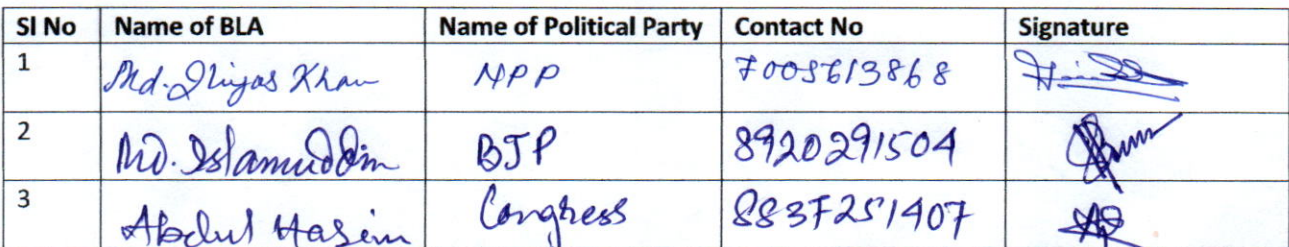 Sl No Name of BLA Name of Political Party Contact No Signature
1 Md. Iliyas Khan NPP 7005613868
2 Md. Islamuddin BJP 8920291504
3 Abdul Hasim Congress 8837251407